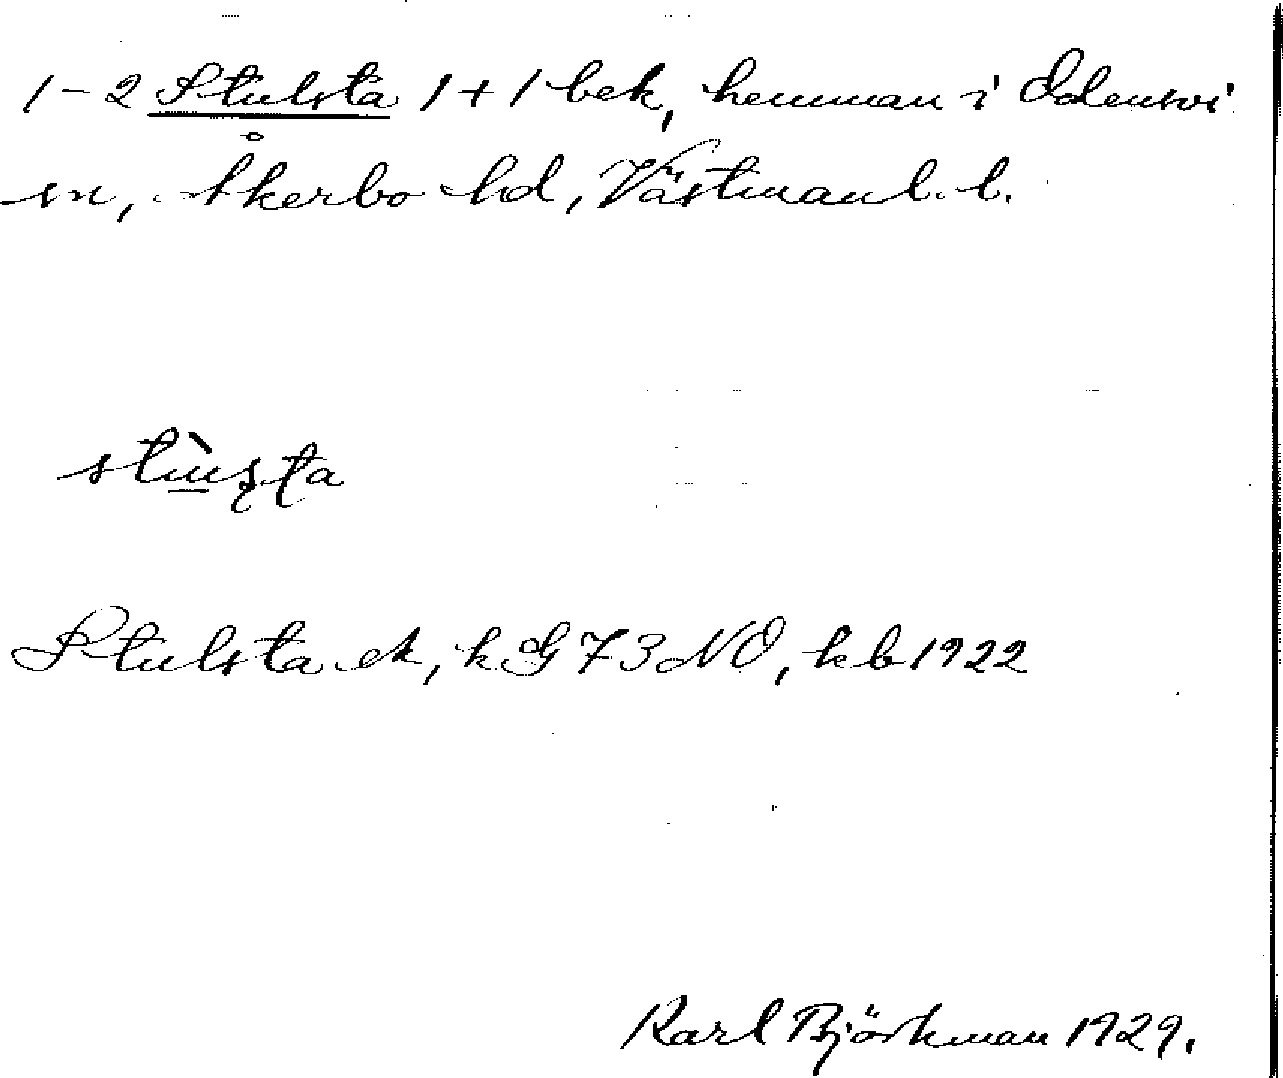 1-2 Stulsta 1+1 bek, hemman i Odensvi
sn, Åkerbo hd, Västmanl. l.
Stulsta ek, kG73NO, kb1922
Karl Björkman 1929.